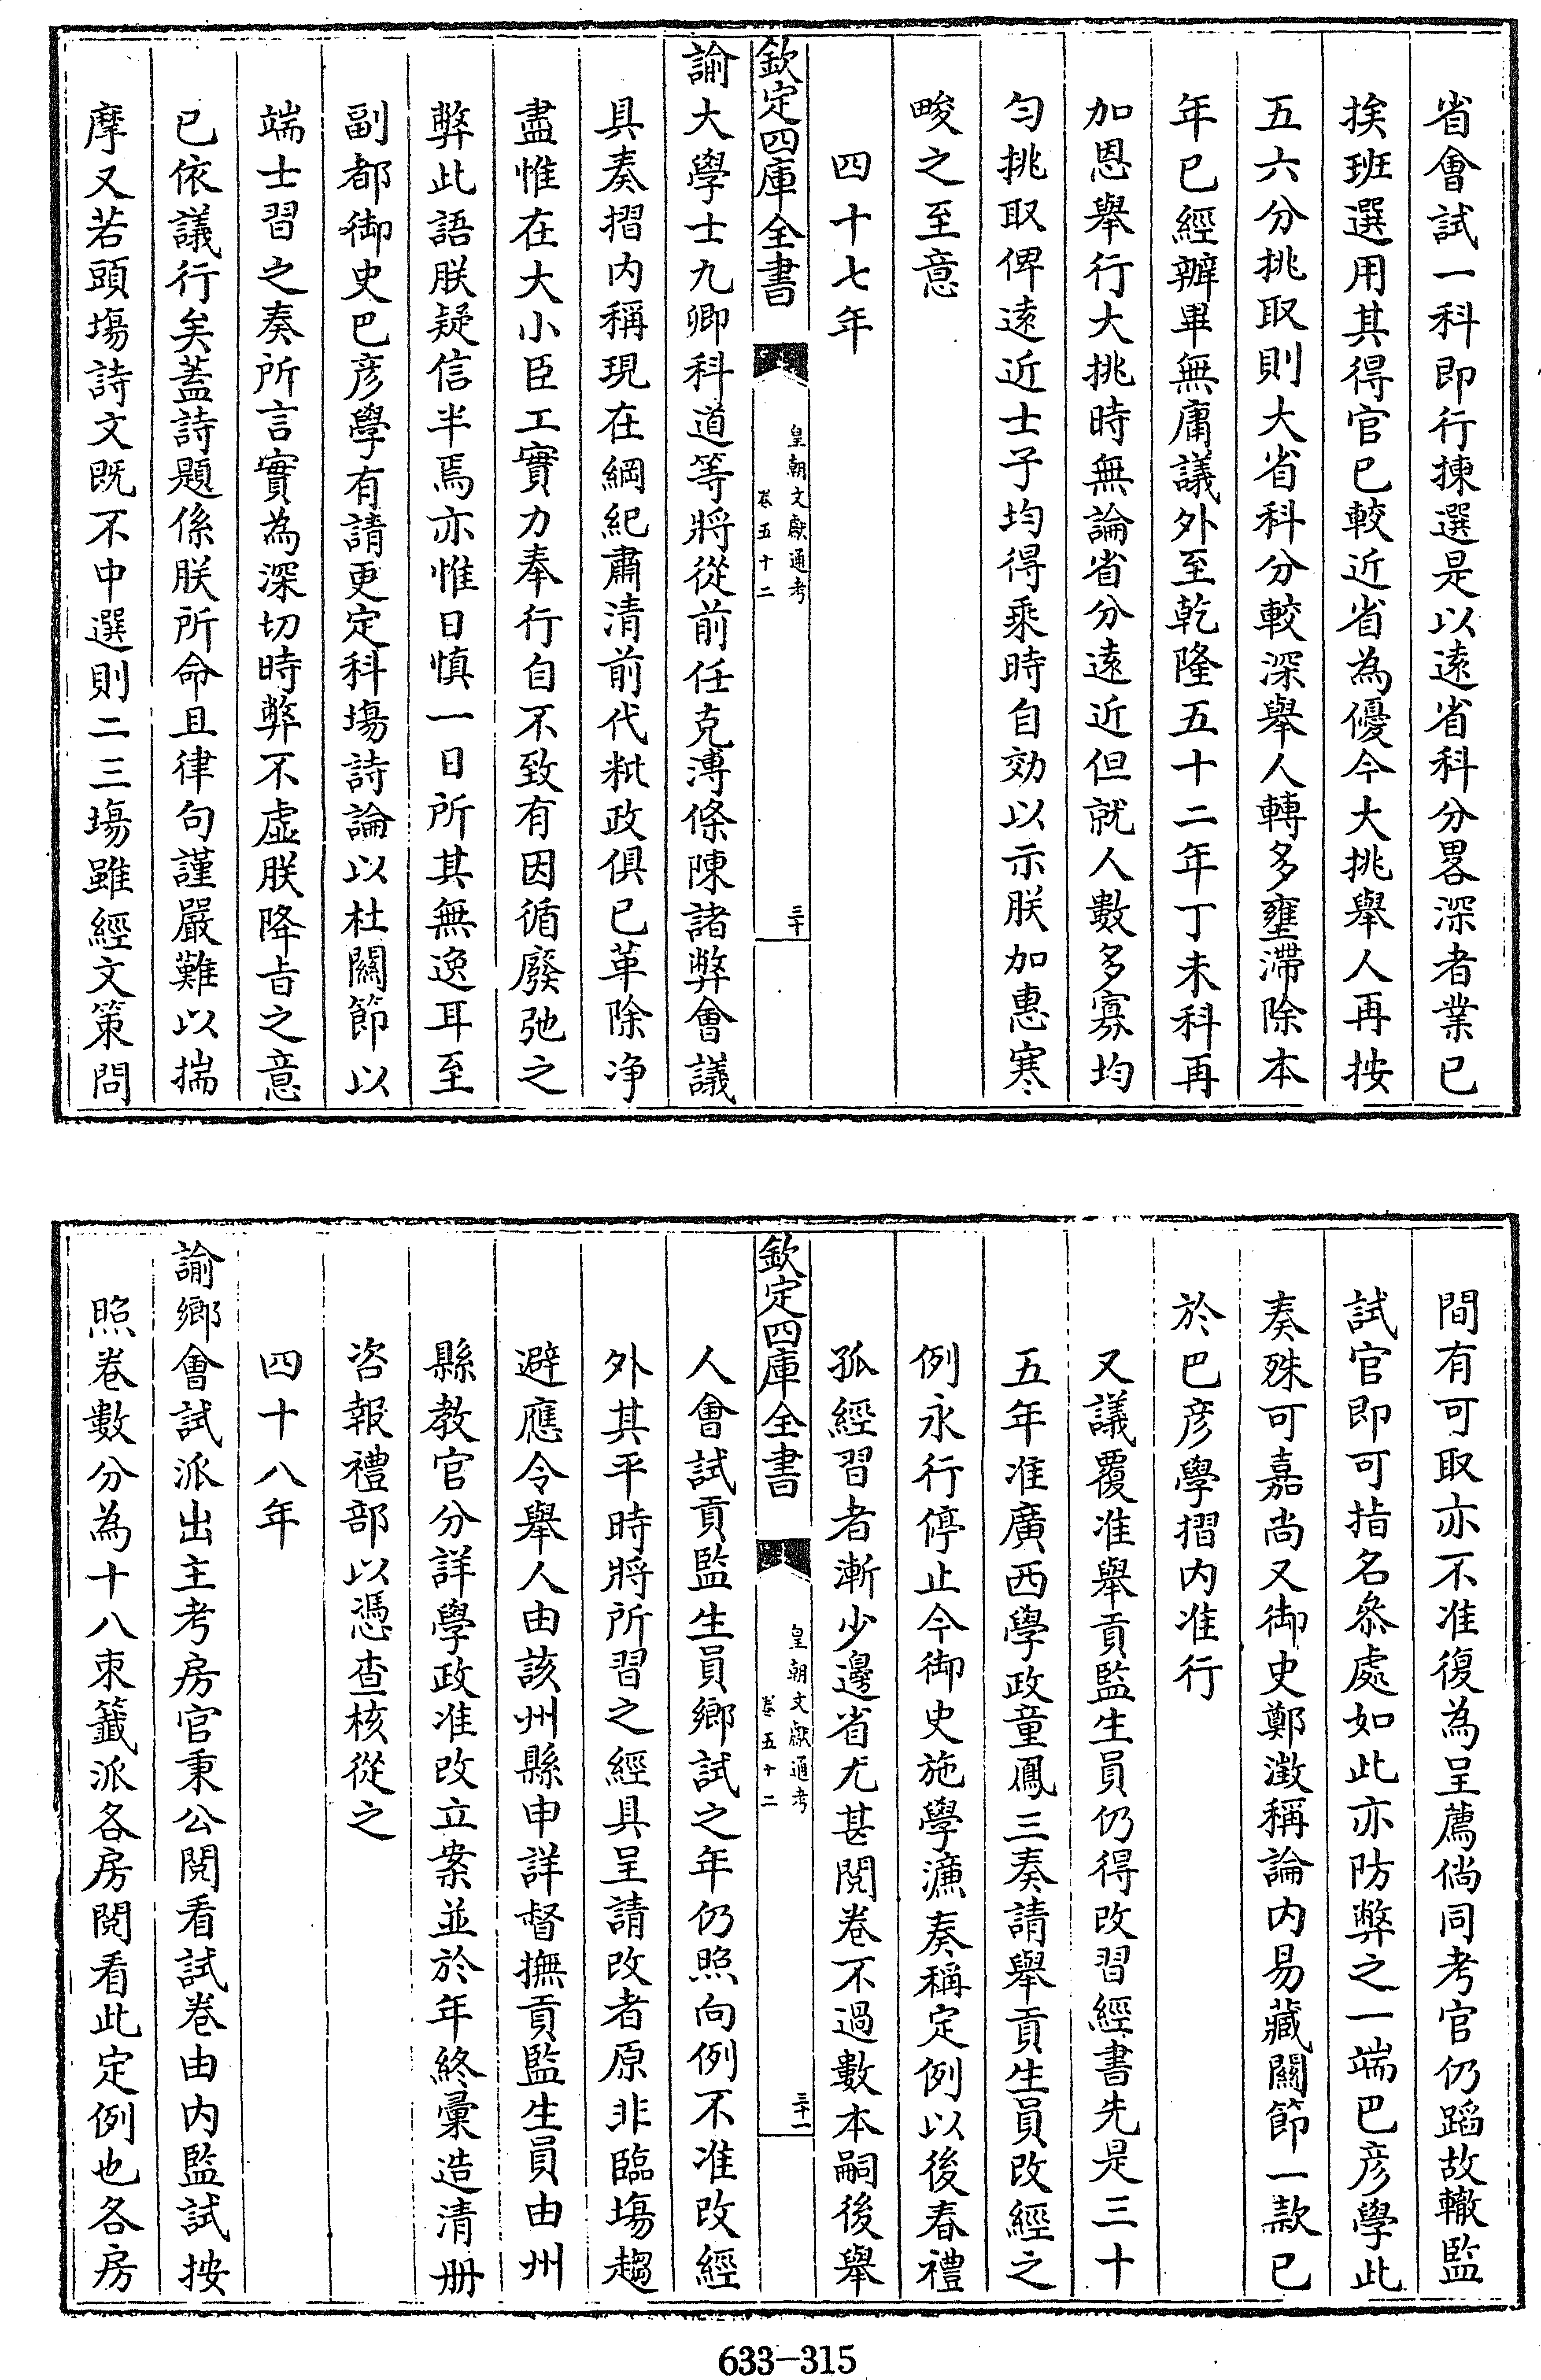 省會試一科即行揀選是以遠省科分畧深者業已
挨班選用其得官已較近省為優今大挑舉人再按
五六分挑取則大省科分較深舉人轉多壅滯除本
年已經辦畢無庸議外至乾隆五十二年丁未科再
加恩舉行大挑時無論省分遠近但就人數多寡均
勻挑取俾遠近士子均得乘時自効以示朕加惠寒
畯之至意
四十七年
欽定四庫全書
皇朝文獻通考
卷五十二
三十
諭大學士九卿科道等將從前任克溥條陳諸弊會議
具奏摺内稱現在綱紀肅清前代粃政俱已革除净
盡惟在大小臣工實力奉行自不致有因循廢弛之
弊此語朕疑信半焉亦惟日慎一日所其無逸耳至
副都御史巴彦學有請更定科塲詩論以杜關節以
端士習之奏所言實為深切時弊不虚朕降㫖之意
已依議行矣蓋詩題係朕所命且律句謹嚴難以揣
摩又若頭塲詩文既不中選則二三塲雖經文策問
間有可取亦不准復為呈薦倘同考官仍蹈故轍監
試官即可指名叅處如此亦防弊之一端巴彦學此
奏殊可嘉尚又御史鄭澂稱論内易藏關節一款已
於巴彦學摺内准行
又議覆准舉貢監生員仍得改習經書先是三十
五年准廣西學政童鳳三奏請舉貢生員改經之
例永行停止今御史施學濂奏稱定例以後春禮
孤經習者漸少邊省尤甚閱卷不過數本嗣後舉
欽定四庫全書
皇朝文獻通考
卷五十二
三十一
人會試貢監生員鄉試之年仍照向例不准改經
外其平時將所習之經具呈請改者原非臨塲趨
避應令舉人由該州縣申詳督撫貢監生員由州
縣教官分詳學政准改立案並於年終彙造清册
咨報禮部以憑查核從之
四十八年
諭鄉會試派出主考房官秉公閱看試卷由内監試按
照卷數分為十八束籤派各房閱看此定例也各房
633-315